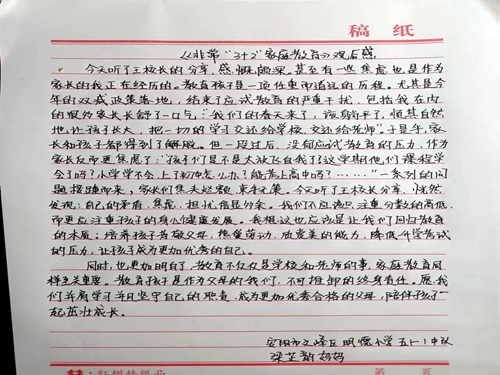 稿 纸
从非常"3+2"家庭教育分观后感
今天听了王校长的分享,感慨颇深。甚至有一些焦虑也是作为
家长的我正在经历的。教育孩子是一项任重而道远的历程。尤其是今
年的双减政策落地,结束了应试教育的严重干扰,包括我在内
的很多家长长舒了一口气:"我们的春天来了,该躺平了,顺其自然
地,让孩子长大,把一切的学习交还给学校,交还给老师"于是乎,家
长和孩子都得到了解脱。但一段过后,没有应试教育的压力,作为
家长反而更焦虑了:"孩子们是不是太放飞自我了这学期他们课程学
会了吗?小学学不会,上了初中怎么办?能考上高中吗?……"一系列的问
题接踵而来,家长们焦头烂额,束手无策。今天听了王校长分享,恍然
发现:自己的矛盾,焦虑,担忧是多余。我们不应该只注重分数的高低,
而更应注重孩子的身心健康发展。我想这也应该是让我们回归教育
的本质:培养孩子孝敬父母,热爱劳动,放宽美的能力,降低升学考试
的压力,让孩子成为更加优秀的自己。
同时,也更加明白,教育不仅仅是学校和老师的事,家庭教育同
样至关重要。教育孩子是作为父母的我们,不可推卸的终身责任。愿我
们并肩学习并且坚守自己的职责,成为更加优秀合格的父母,陪伴孩子一
起茁壮成长。
安阳市文峰区明儒小学五(-)中队
梁芷韵妈妈
第 页